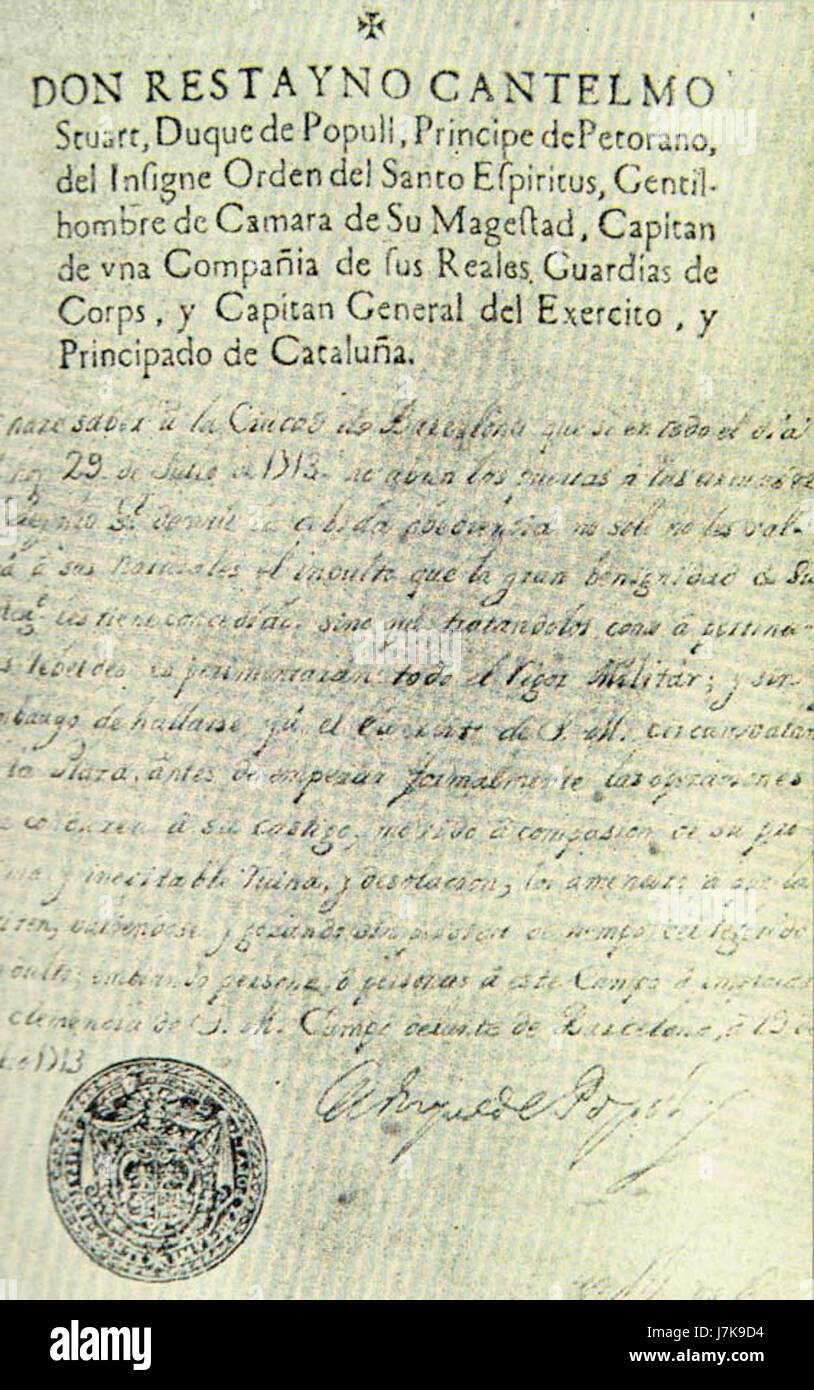 ✠
DON RESTAYNO CANTELMO
Stuart, Duque de Populi, Principe de Petorano,
del Insigne Orden del Santo Espiritus, Gentil-
hombre de Camara de Su Magestad, Capitan
de vna Compañia de sus Reales Guardias de
Corps, y Capitan General del Exercito, y
Principado de Cataluña.
haze saber â la Ciudad de Barzelona que si en todo el dia
29 de Julio de 1713 no abren las puertas a las
la debida obediencia no solo no les val-
â sus naturales el indulto que la gran benignidad de Su
les tiene concedido, sino que tratandolos como â pertina-
rebeldes esperimentaran todo el Rigor Militar; y sin
embargo de hallarse ya el Exercito de S. M. circunvalan
la Plaza, antes de empezar formalmente las operaziones
â su castigo, movido â compasion de su
y inevitable Ruina, y desolacion, los amenasto â que la
y gozando sin de tiempo del
persona ô personas â este Campo â implorar
clemencia de S. M. Campo delante de Barcelona, â 29 de
1713
El Duque de Populi
alamy
Image ID: J7K9D4
www.alamy.com